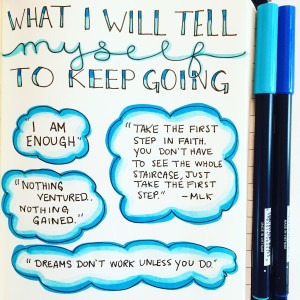 WHAT I WILL TELL
myself
TO KEEP GOING
"I AM
ENOUGH"
"TAKE THE FIRST
STEP IN FAITH.
YOU DON'T HAVE
TO SEE THE WHOLE
STAIRCASE, JUST
TAKE THE FIRST
STEP." -MLK
"NOTHING
VENTURED.
NOTHING
GAINED."
"DREAMS DON'T WORK UNLESS YOU DO."